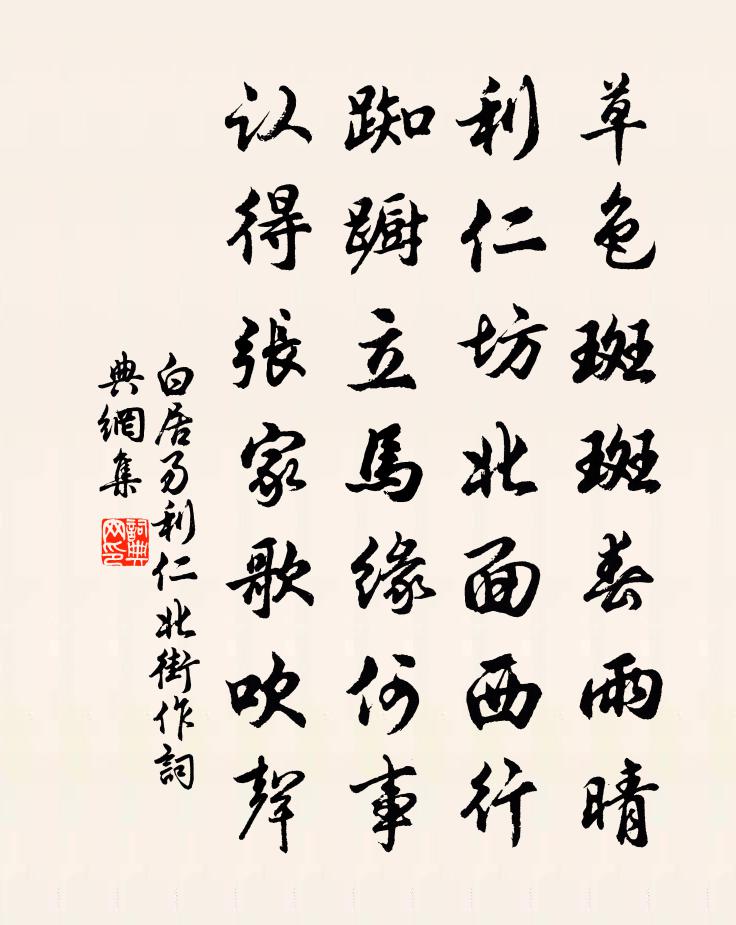 草色斑斑春雨晴
利仁坊北面西行
踟蹰立馬緣何事
认得張家歌吹聲
白居易利仁北街作詞
典網集
詞典网印